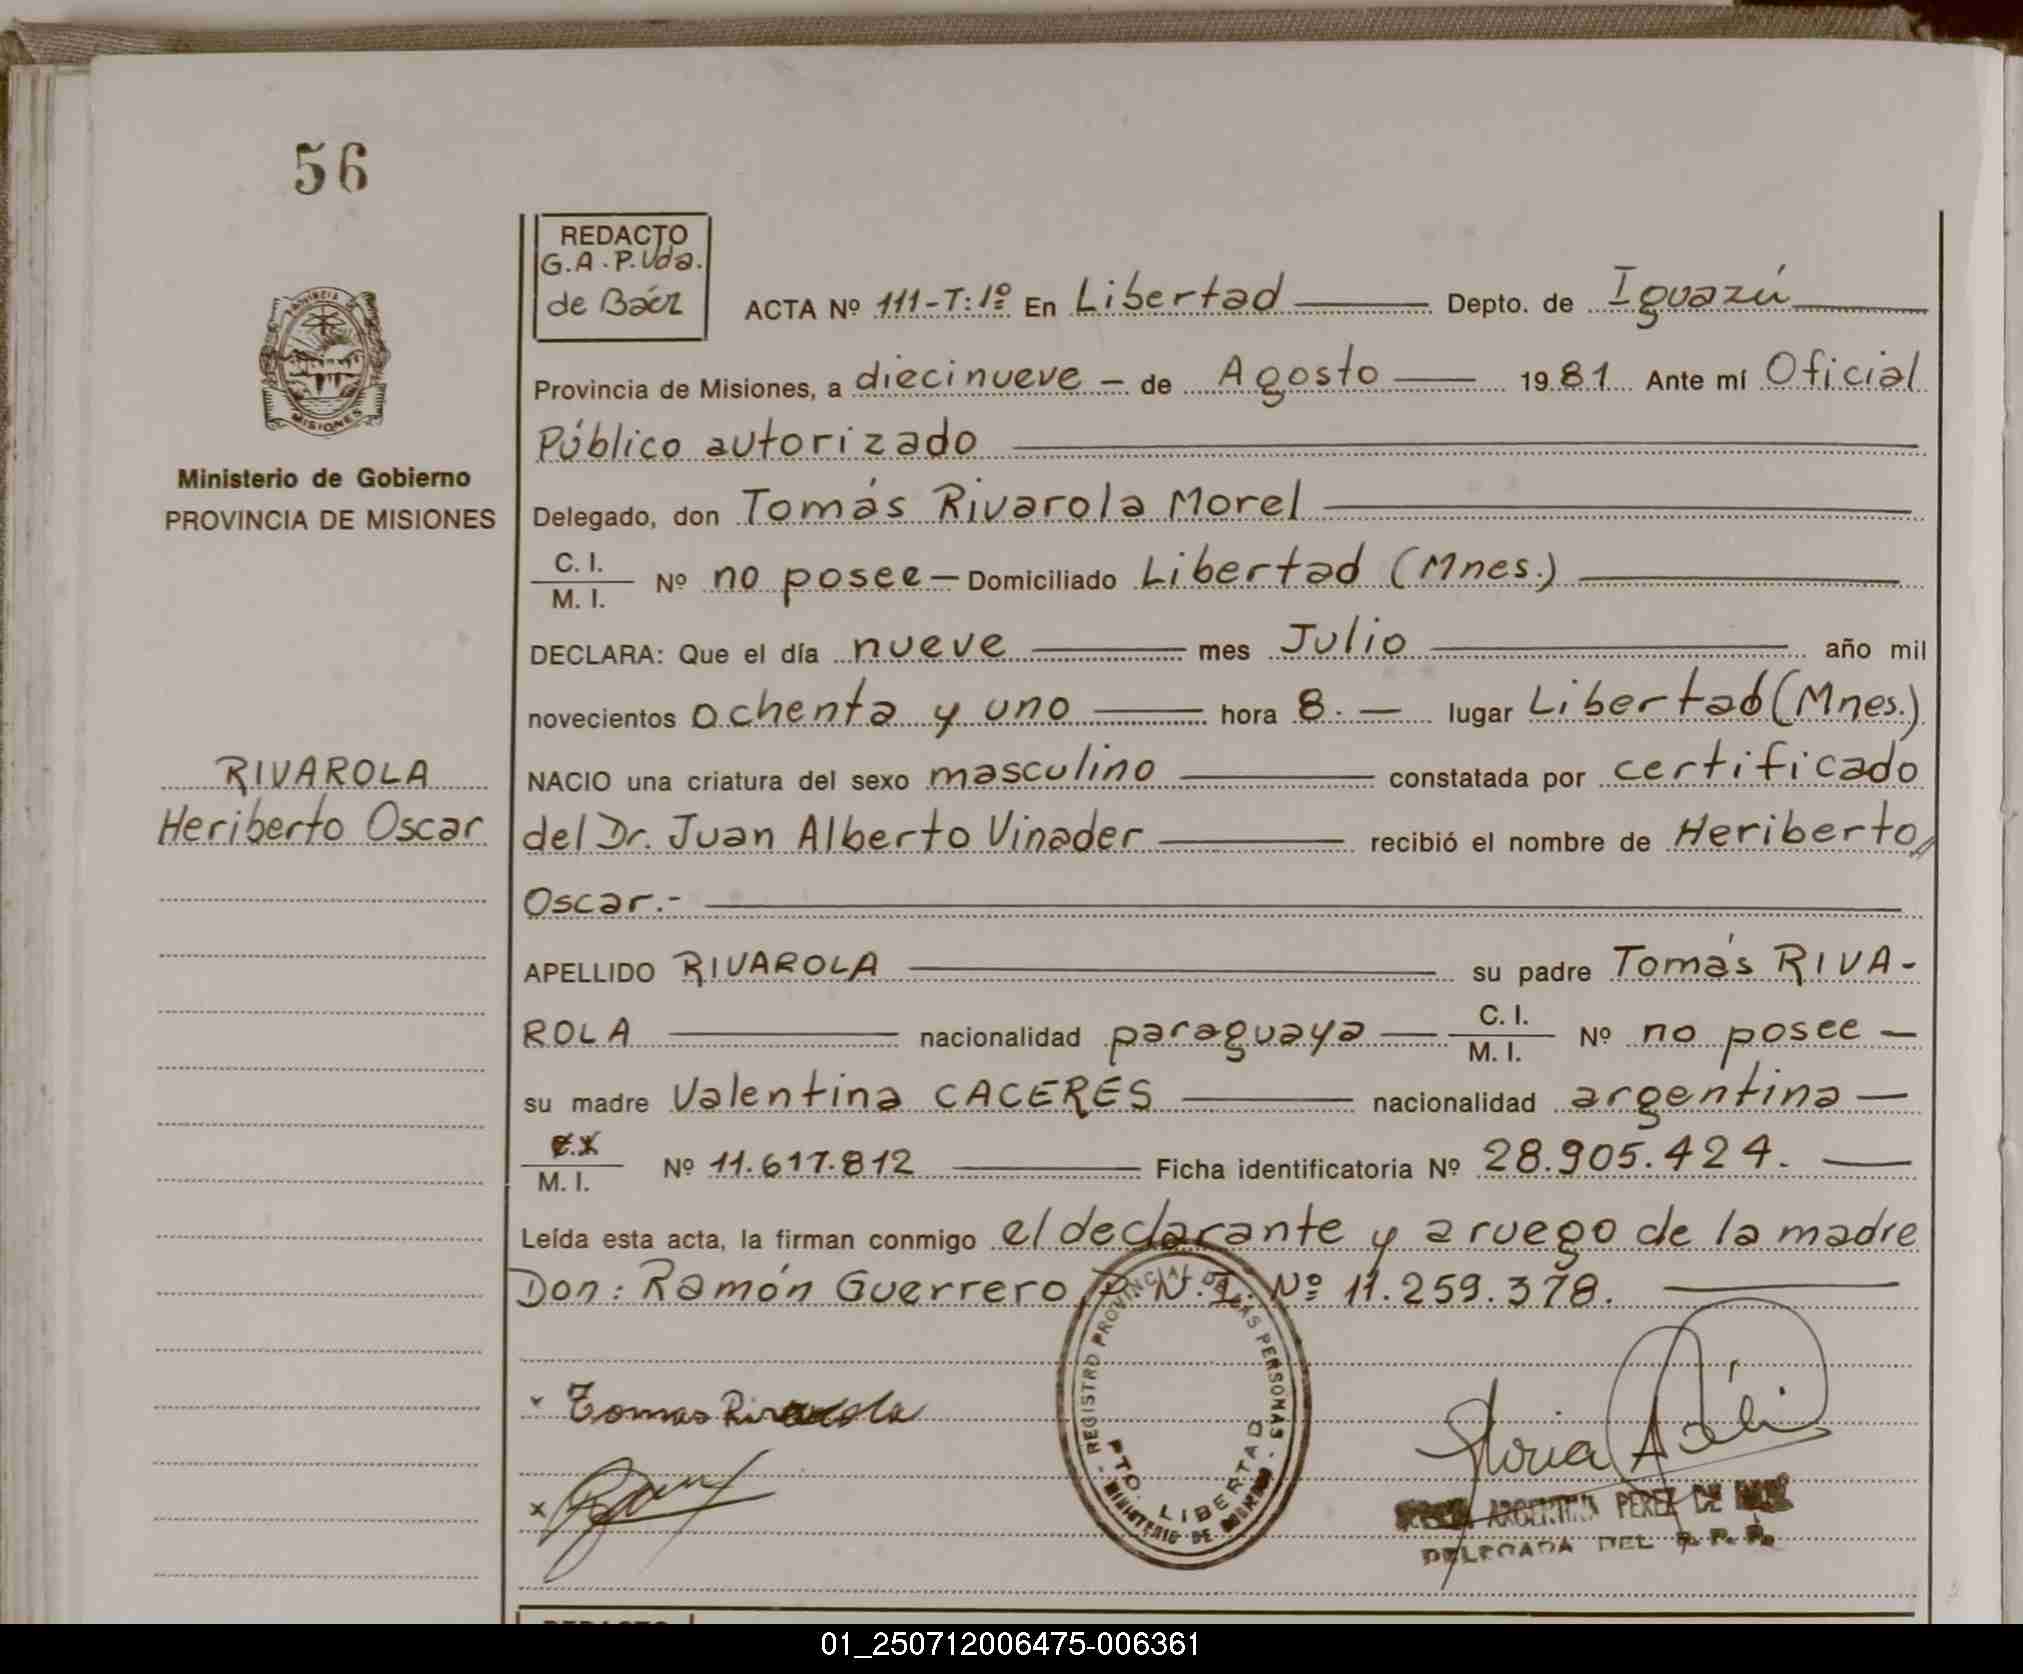 56
REDACTO
G.A.P. Vda.
de Báez
ACTA Nº 111-T:1º En Libertad Depto. de Iguazú
Provincia de Misiones, a diecinueve de Agosto 1981 Ante mí Oficial
Público autorizado
Ministerio de Gobierno
PROVINCIA DE MISIONES
Delegado, don Tomás Rivarola Morel
C. I.
M. I. Nº no posee Domiciliado Libertad (Mnes.)
DECLARA: Que el día nueve mes Julio año mil
novecientos ochenta y uno hora 8. lugar Libertad (Mnes.)
RIVAROLA
Heriberto Oscar
NACIO una criatura del sexo masculino constatada por certificado
del Dr. Juan Alberto Vinader recibió el nombre de Heriberto
Oscar.-
APELLIDO RIVAROLA su padre Tomás RIVA-
ROLA nacionalidad paraguaya C. I. M. I. Nº no posee
su madre Valentina CACERES nacionalidad argentina
M. I. Nº 11.617.812 Ficha identificatoria Nº 28.905.424.
Leída esta acta, la firman conmigo el declarante y a ruego de la madre
Don: Ramón Guerrero, D.N.I. Nº 11.259.378.
Tomas Rivarola
REGISTRO PROVINCIAL DE LAS PERSONAS
PTO. LIBERTAD
MINISTERIO DE
ARGENTINA PEREZ DE
DELEGADA DEL R. P. P.
PROVINCIA
MISIONES
01_250712006475-006361